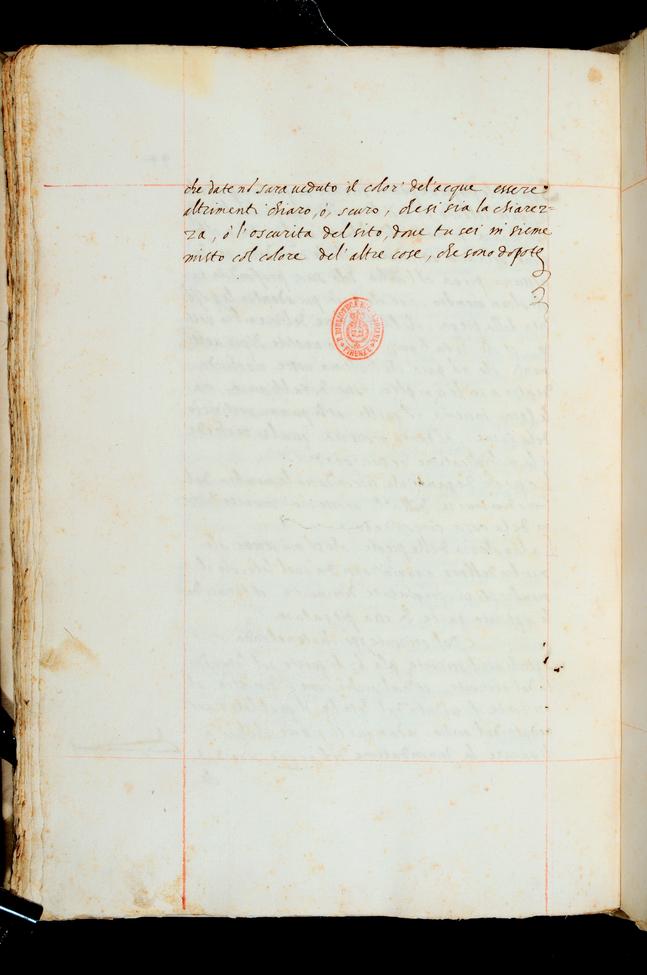 che da te nō sara ueduto il color' del'acque essere
altrimenti chiaro, ò, scuro, che si sia la chiarez=
za, ò l'oscurita del sito, doue tu sei in sieme
misto col colore del'altre cose, che sono dopo te
FIRENZE